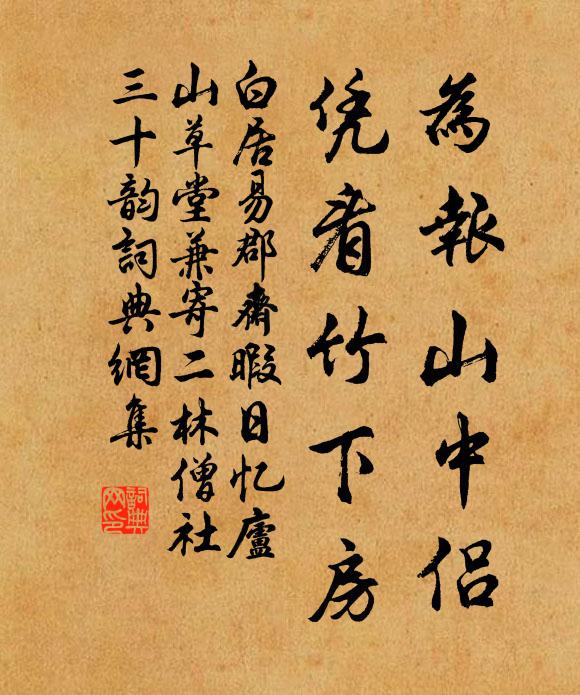 為報山中侣
凭看竹下房
白居易郡齋暇日忆廬
山草堂兼寄二林僧社
三十韵詞典網集
詞典
网印